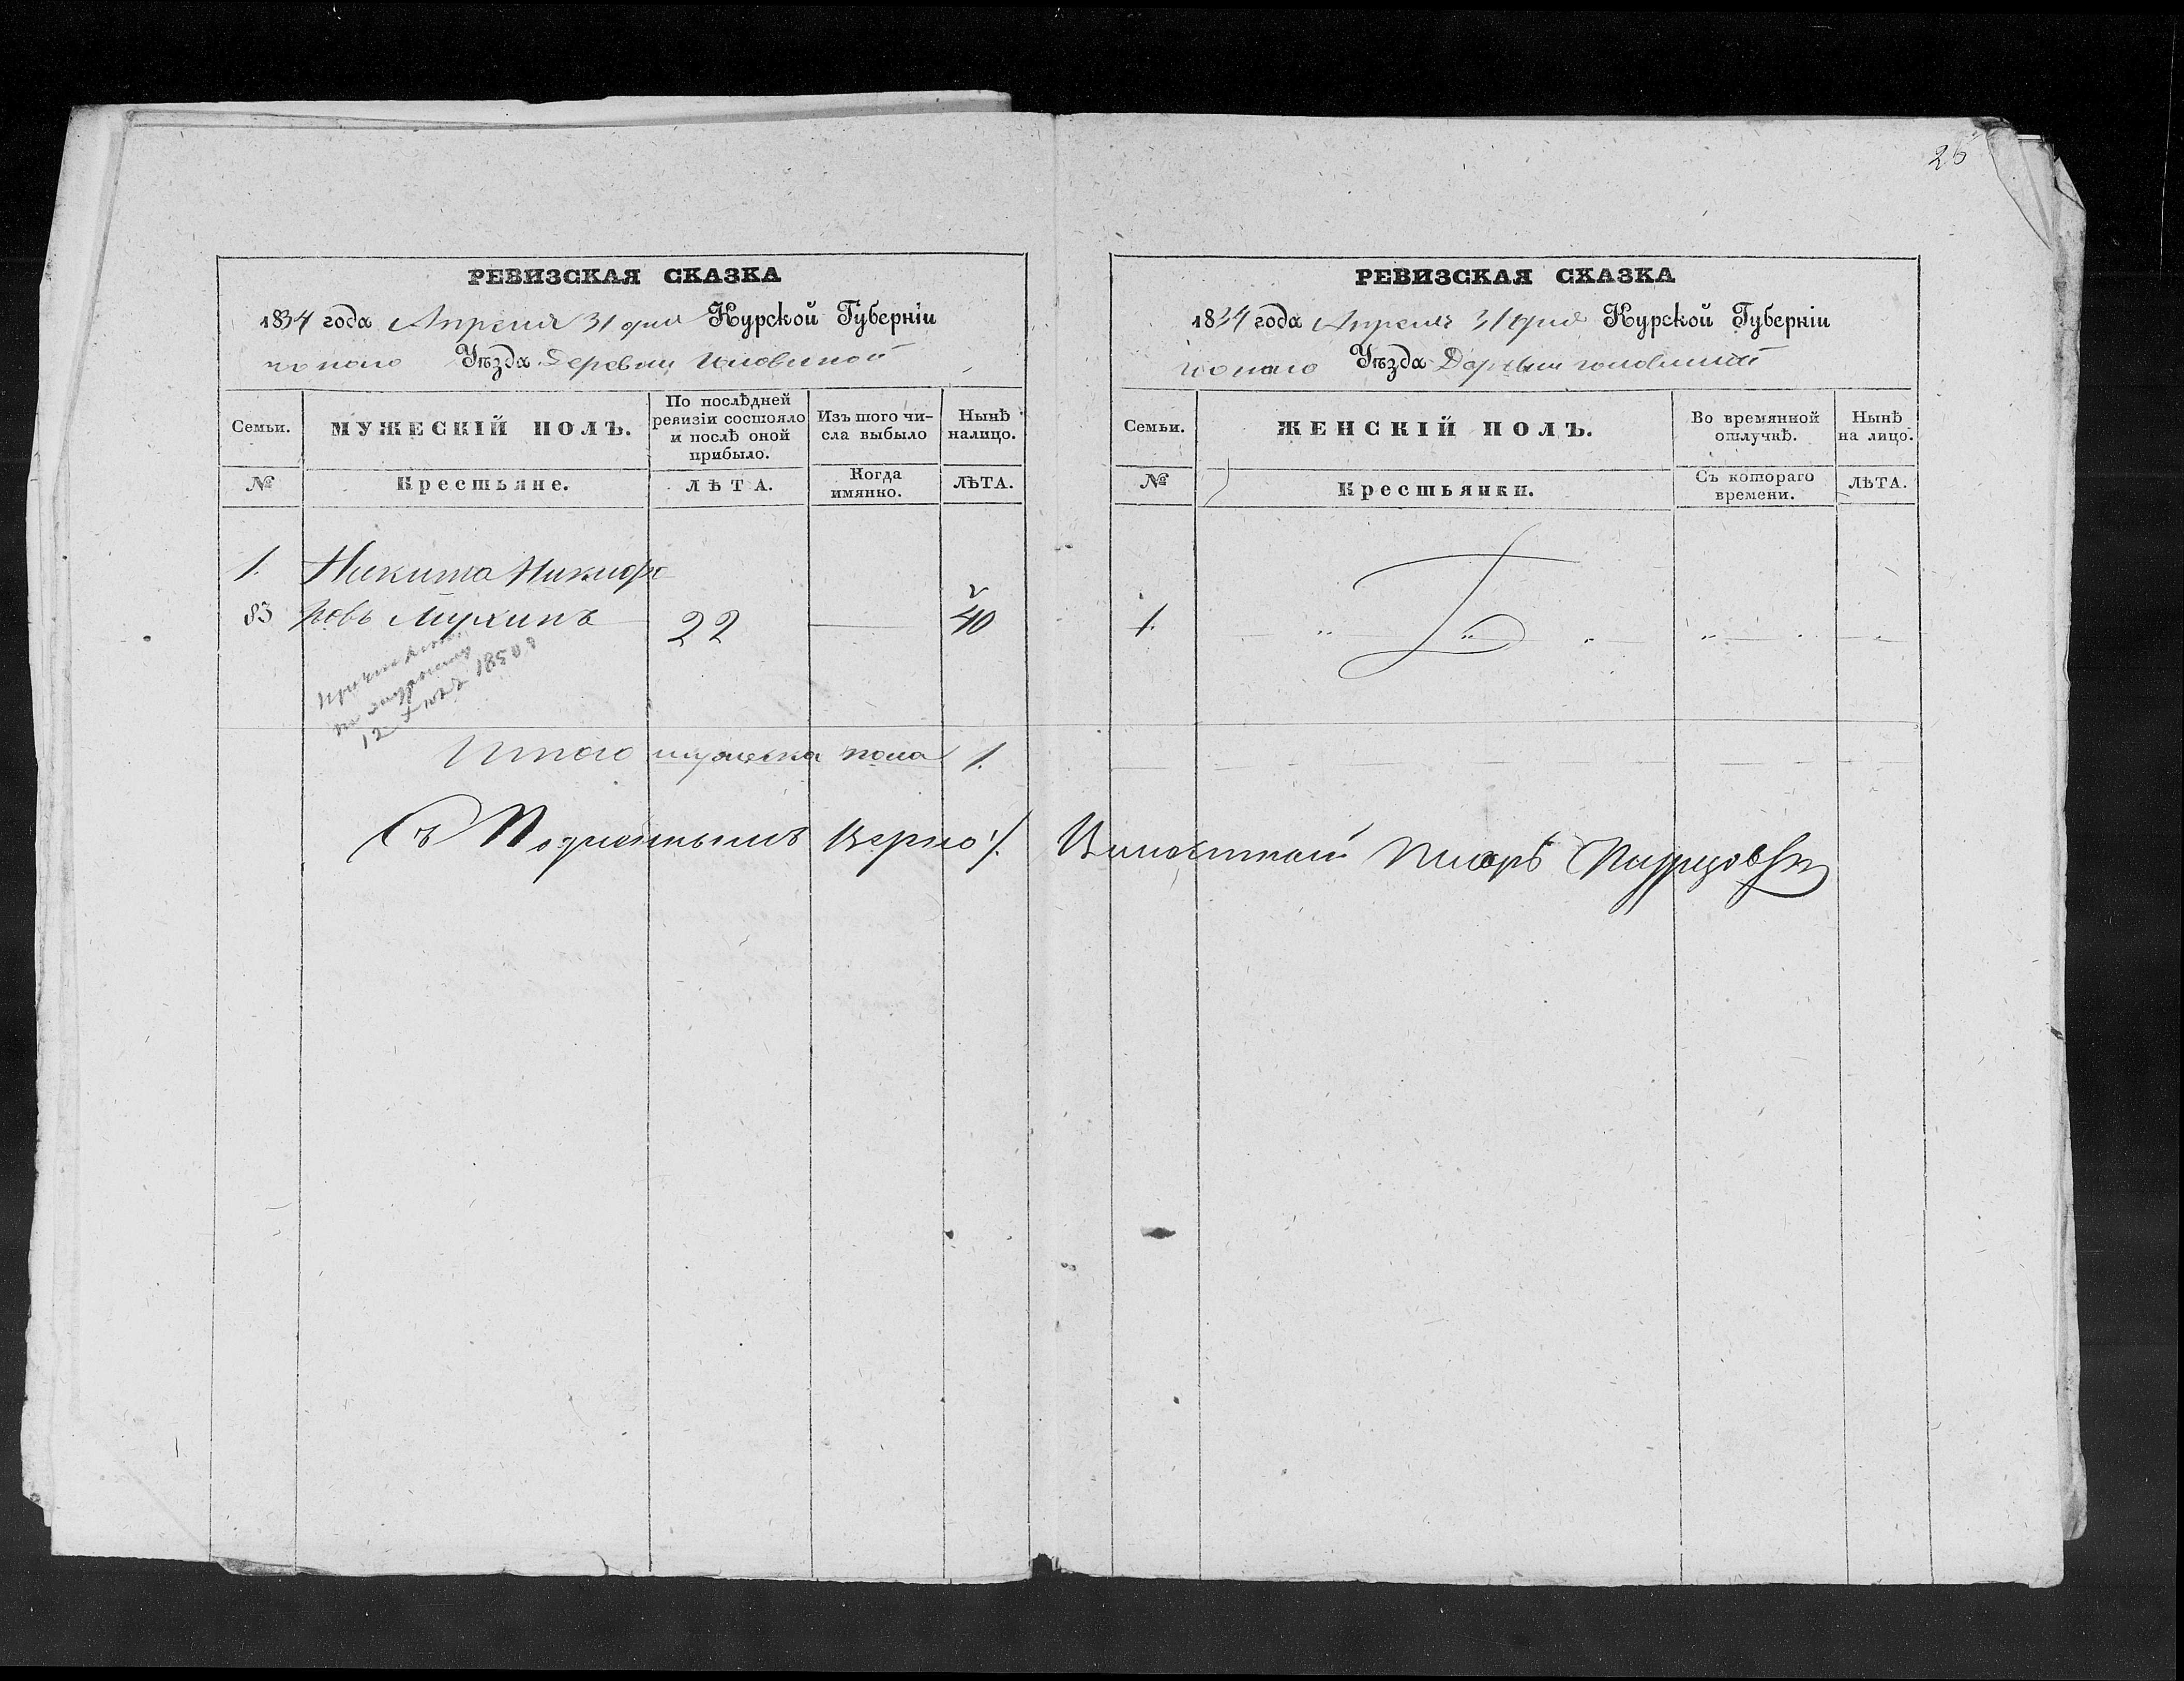 26
РЕВИЗСКАЯ СКАЗКА
1834 года Апреля 31 дня Курской Губерніи
Уѣзда Деревни Головиной
Семьи.
МУЖЕСКІЙ ПОЛЪ.
По послѣдней ревизіи состояло и послѣ оной прибыло.
Изъ того числа выбыло
Нынѣ налицо.
№
Крестьяне.
ЛѢТА.
Когда имянно.
ЛѢТА.
1. Никита Никифо
83 ровъ Мухинъ 22 40
12 1850
Итого мужеска пола 1.
Съ Подлиннымъ Верно
РЕВИЗСКАЯ СКАЗКА
1834 года Апреля 31 дня Курской Губерніи
Уѣзда Деревни Головиной
Семьи.
ЖЕНСКІЙ ПОЛЪ.
Во времянной отлучкѣ.
Нынѣ на лицо.
№
Крестьянки.
Съ котораго времени.
ЛѢТА.
1.
Волостной Писарь